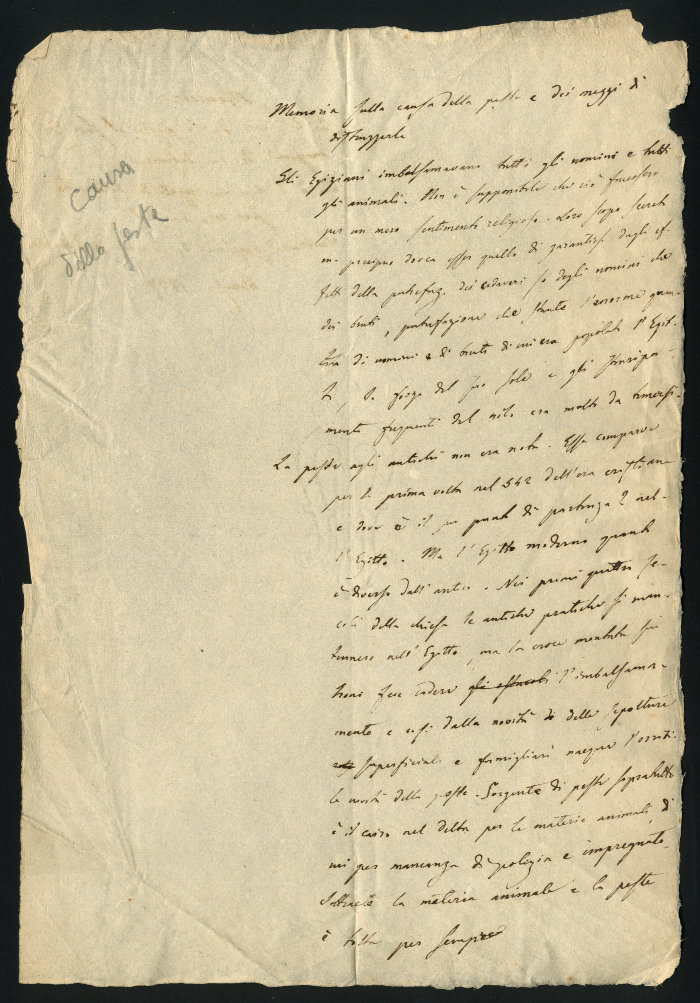 Causa
della peste
Memoria sulla causa della peste e dei mezzi di
distruggerla
Gli Egiziani imbalsamavano tutti gli uomini e tutti
gli animali. Non è supponibile che ciò facessero
per un mero sentimento religioso. Loro scopo secreto
e precipuo dovea esser quello di garantirsi dagli ef-
fetti della putrefaz. dei cadaveri sì degli uomini che
dei bruti, putrefazione che stante l'enorme quan-
tità di uomini e di bruti di cui era popolato l'Egit-
to, la forza del suo sole e gli straripa-
menti frequenti del nilo era molto da temersi.
La peste agli antichi non era nota. Essa comparve
per la prima volta nel 542 dell'era cristiana
e dove è il suo punto di partenza? nel-
l'Egitto. Ma l'Egitto moderno quanto
è diverso dall'antico. Nei primi quattro se-
coli della chiesa le antiche pratiche si man-
tennero nell'Egitto, ma la croce montata sui
troni fece cadere gli ostacoli l'imbalsama-
mento e così dalla novità di delle sepolture
superficiali e famigliari nacque l'orribi-
le novità della peste. Sorgente di peste soprattutto
è il cairo nel delta per le materie animali, di
cui per mancanza di polizia è impregnato.
Sottraete la materia animale e la peste
è tolta per sempre